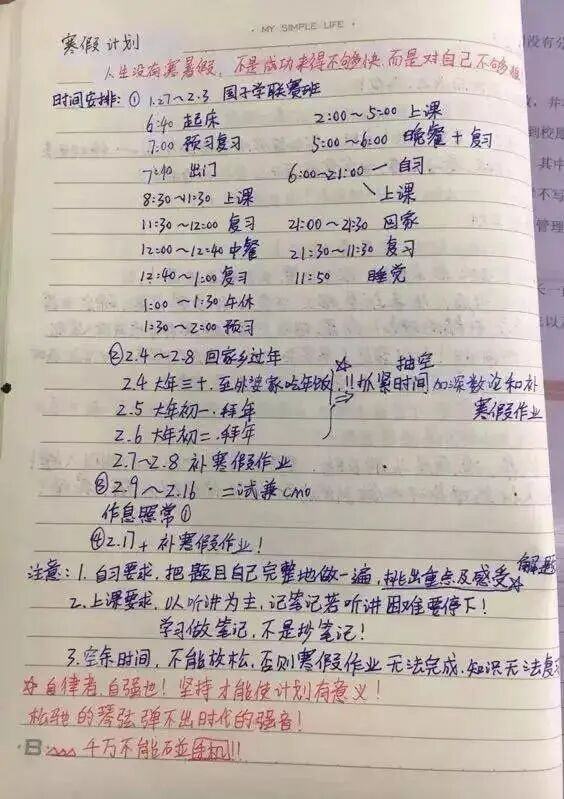 · MY SIMPLE LIFE ·
寒假计划
人生没有寒暑假，不是成功来得不够快，而是对自己不够狠
时间安排：① 1.27～2.3 国子学联赛班
6:40 起床 2:00～5:00 上课
7:00 预习复习 5:00～6:00 晚餐＋复习
7:40 出门 6:00～21:00 — 自习
8:30～11:30 上课 上课
11:30～12:00 复习 21:00～21:30 回家
12:00～12:40 中餐 21:30～11:30 复习
12:40～1:00 复习 11:50 睡觉
1:00～1:30 午休
1:30～2:00 预习
② 2.4～2.8 回家乡过年 抽空
2.4 大年三十、至外婆家吃年饭 ☆ !! 抓紧时间 加深数论和补
2.5 大年初一、拜年 ⇒ 寒假作业
2.6 大年初二、拜年
2.7～2.8 补寒假作业
③ 2.9～2.16 · 二试兼CMO
作息照常①
④ 2.17+ 补寒假作业！
注意：1. 自习要求，把题目自己完整地做一遍，挑出重点及感受☆ 解题
2. 上课要求，以听讲为主，记笔记若听讲困难要停下！
学习做笔记，不是抄笔记！
3. 空余时间，不能放松，否则寒假作业无法完成，知识无法复
☆ 自律者，自强也！坚持才能使计划有意义！
松弛的琴弦弹不出时代的强音！
千万不能碰手机!!!
没有分
并
到校
其中
不写
管理
长一
以